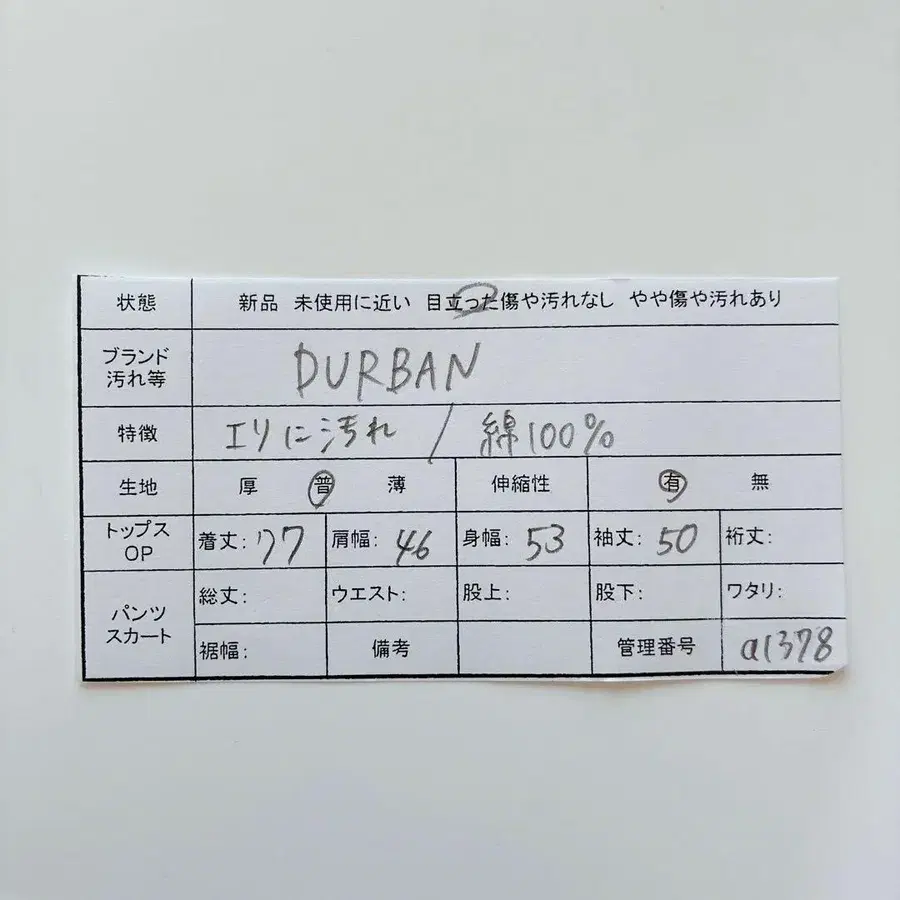 状態 新品 未使用に近い 目立った傷や汚れなし やや傷や汚れあり
ブランド DURBAN
汚れ等
特徴 エリに汚れ / 綿100%
生地 厚 普 薄 伸縮性 有 無
トップス 着丈: 77 肩幅: 46 身幅: 53 袖丈: 50 裄丈:
OP
パンツ 総丈: ウエスト: 股上: 股下: ワタリ:
スカート 裾幅: 備考 管理番号 a1378